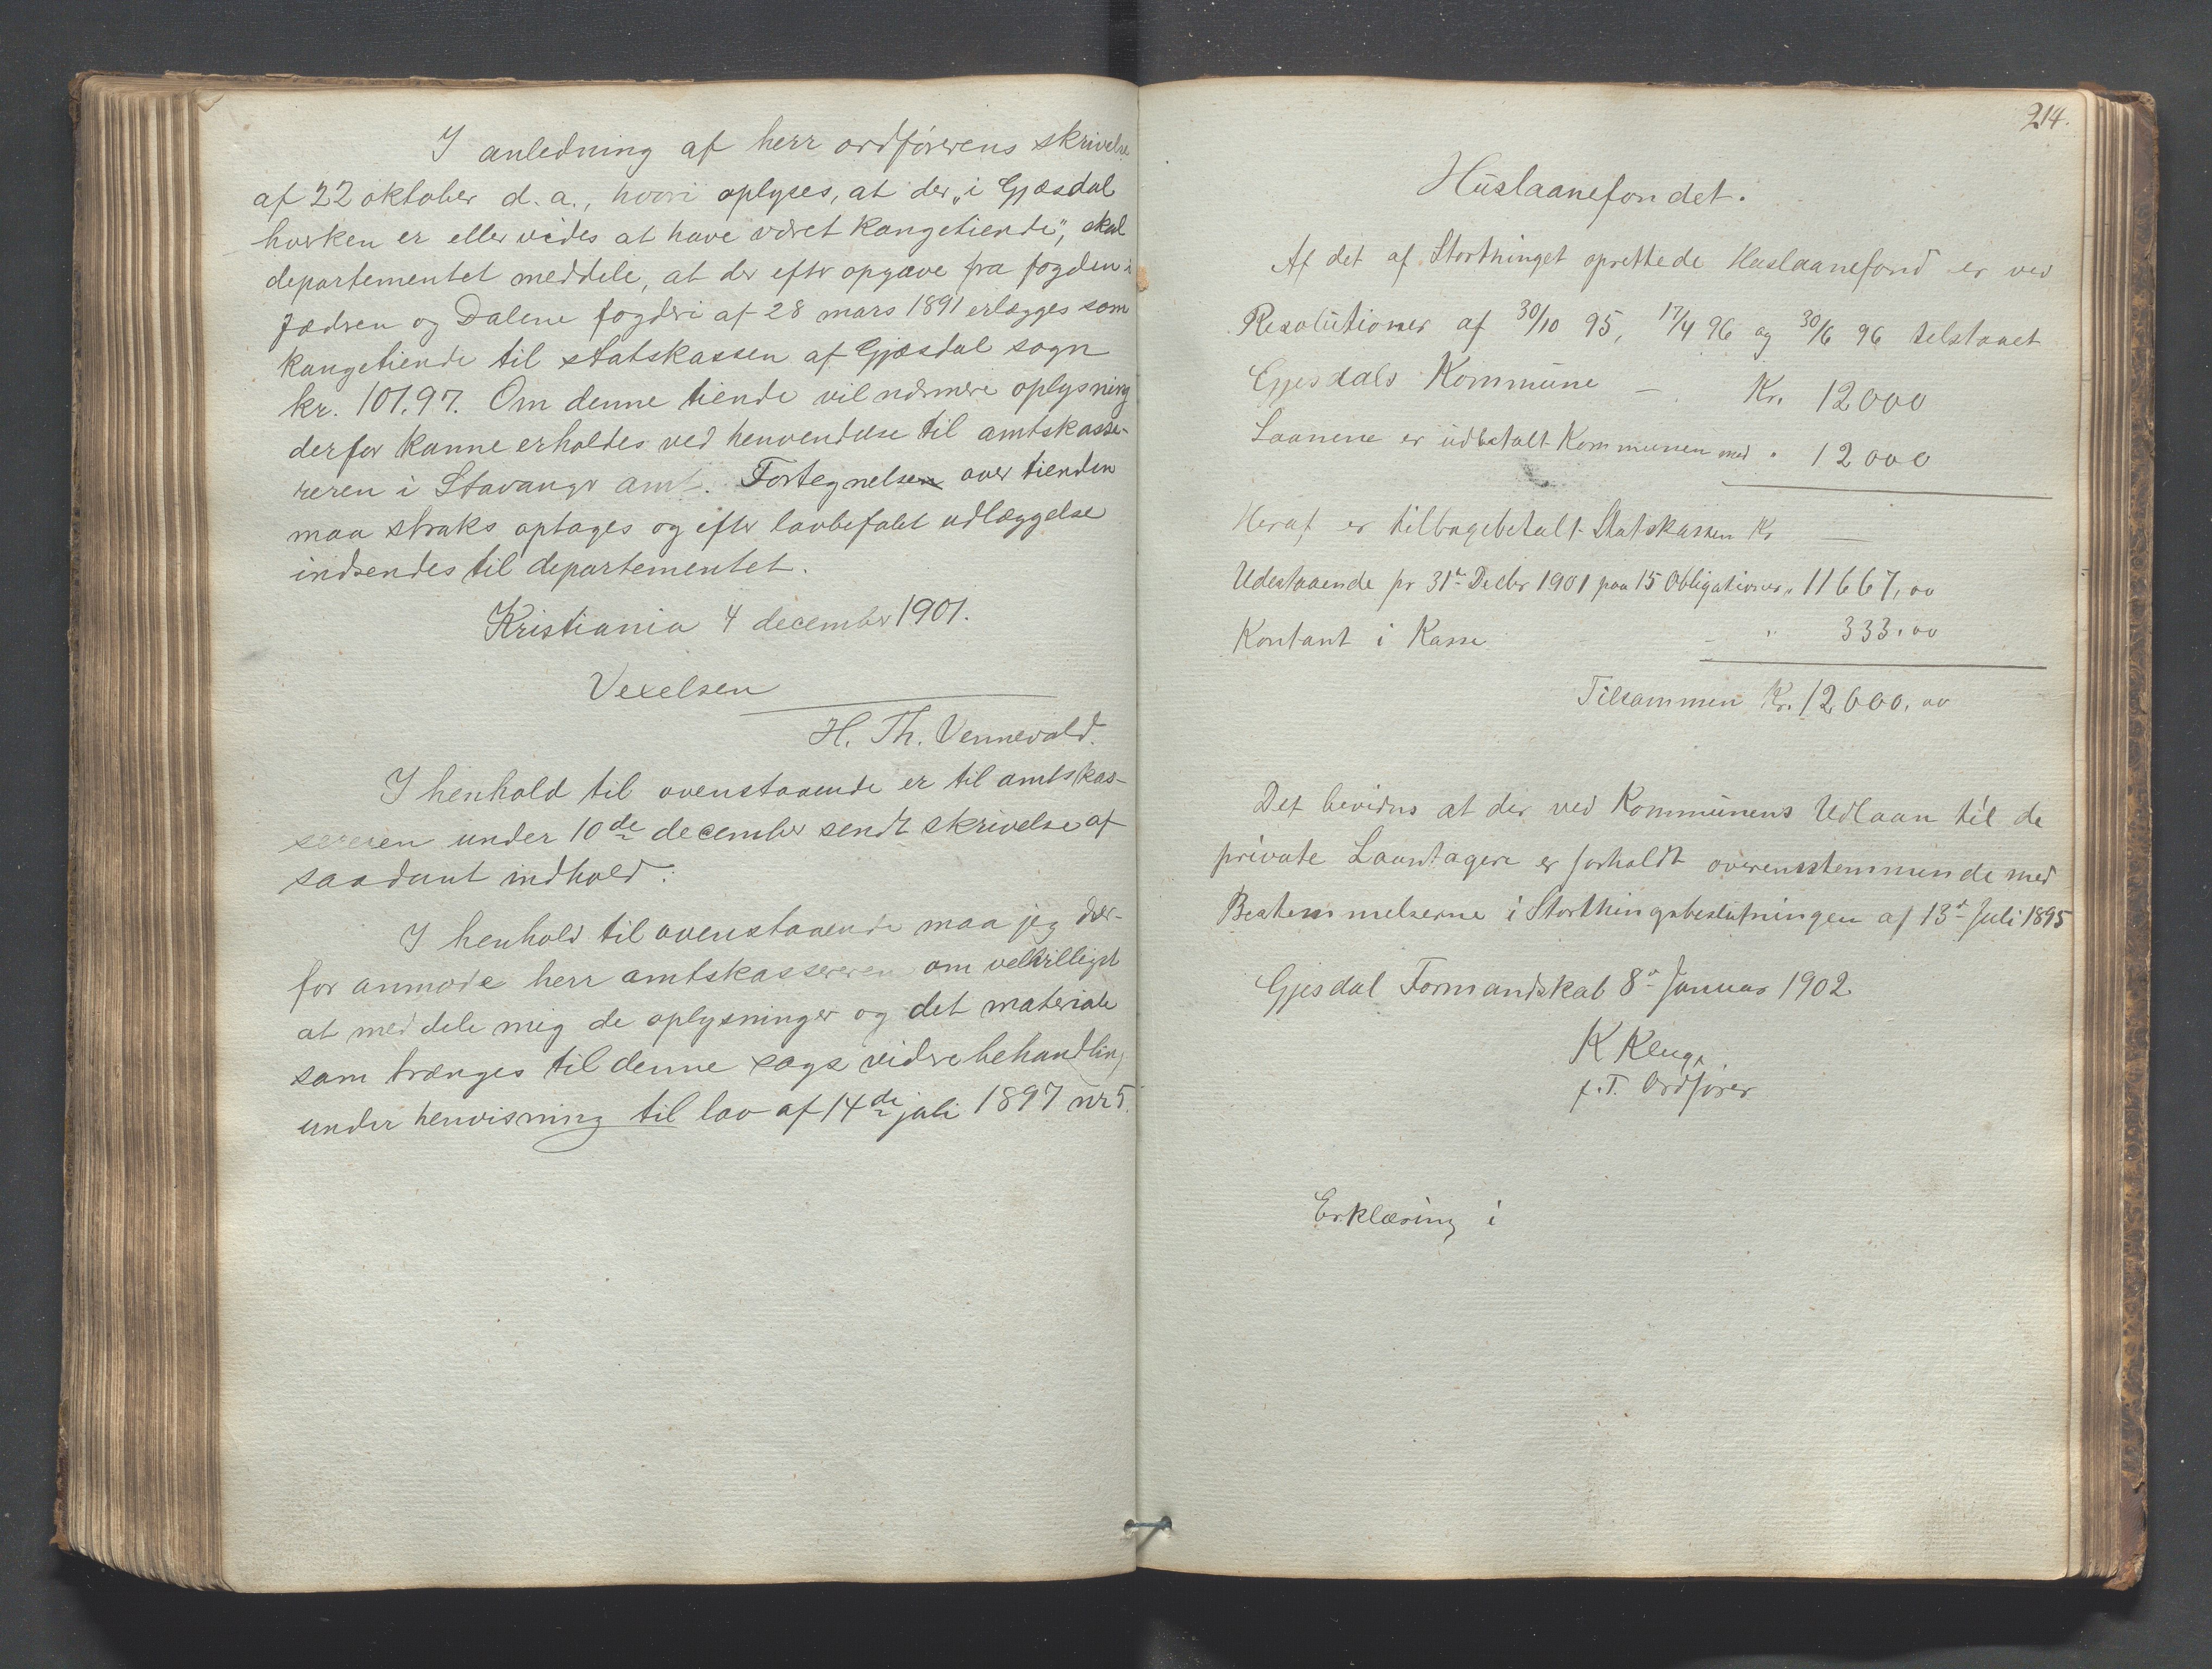 I anledning af herr ordførerens skrivelse
af 22 oktober d. a., hvori oplyses, at der „i Gjæsdal
hverken er eller vides at have været kongetiende", skal
departementet meddele, at der efter opgave fra fogden i
Jædren og Dalene fogderi af 28 mars 1891 erlægges som
kongetiende til statskassen af Gjæsdal sogn
kr. 101,97. Om denne tiende vil nærmere oplysning
derfor kunne erholdes ved henvendelse til amtskasse-
reren i Stavanger amt. Fortegnelsen over tienden
maa straks optages og efter lovbefalet udlæggelse
indsendes til departementet.
Kristiania 4 december 1901.
Vexelsen
H. Th. Vennevold.
I henhold til ovenstaaende er til amtskas-
sereren under 10de december sendt skrivelse af
saadant indhold:
I henhold til ovenstaaende maa jeg der-
for anmode herr amtskassereren om velvilligst
at meddele mig de oplysninger og det materiale
som trænges til denne sags videre behandling
under henvisning til lov af 14de juli 1897 nr 5.
214.
Huslaanefondet.
Af det af Storthinget oprettede Huslaanefond er ved
Resolutioner af 30/10 95, 17/4 96 og 30/6 96 tilstaaet
Gjesdals Kommune – Kr. 12000
Laanene er udbetalt Kommunen med " 12000
Heraf er tilbagebetalt Statskassen Kr —
Udestaaende pr 31te Decbr 1901 paa 15 Obligationer " 11667,00
Kontant i Kasse - " 333,00
Tilsammen Kr. 12000,00
Det bevidnes at der ved Kommunens Udlaan til de
private Laantagere er forholdt overensstemmende med
Bestemmelserne i Storthingsbeslutningen af 13de Juli 1895
Gjesdal Formandskab 8de Januar 1902
K Kluge
f. T. Ordfører
Erklæring i